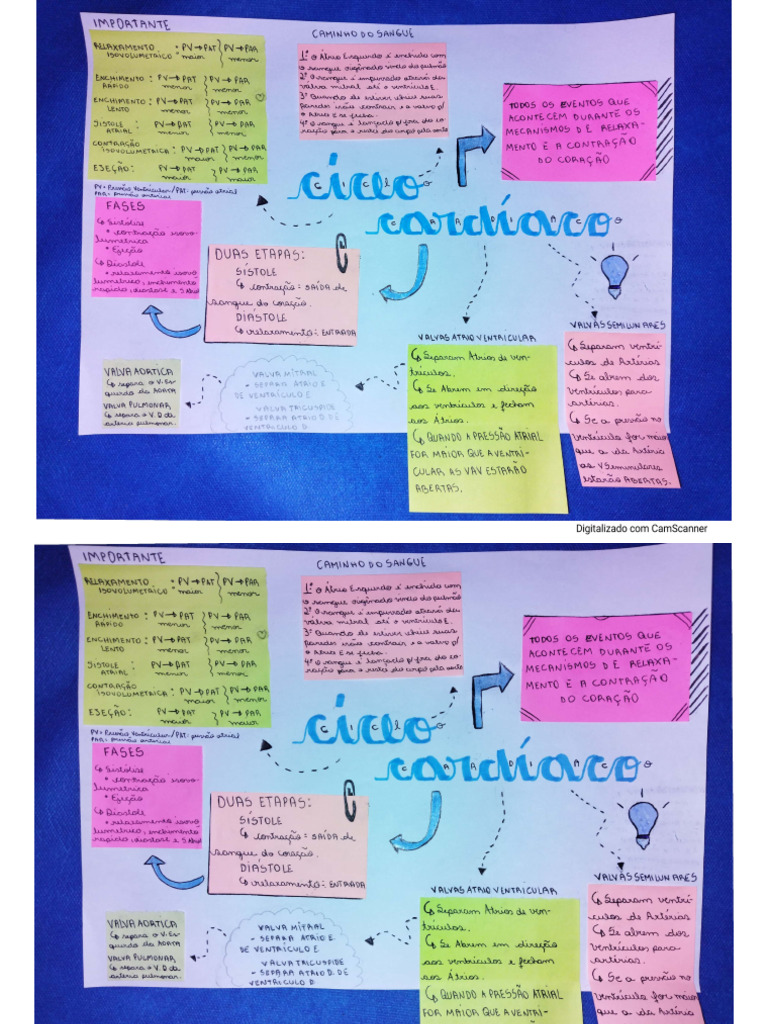 IMPORTANTE
RELAXAMENTO ISOVOLUMETRICO : PV→PAT maior } PV→PAR menor
ENCHIMENTO RÁPIDO : PV→PAT menor } PV→PAR menor
ENCHIMENTO LENTO : PV→PAT menor } PV→PAR menor
SISTOLE ATRIAL : PV→PAT menor } PV→PAR menor
CONTRAÇÃO ISOVOLUMETRICA : PV→PAT maior } PV→PAR menor
EJEÇÃO : PV→PAT maior } PV→PAR maior
PV= Pressão Ventricular / PAT: pressão atrial
PAR= pressão arterial
CAMINHO DO SANGUE
1º o Átrio Esquerdo é enchido com
o sangue oxigenado vindo do pulmão
2º o sangue é empurrado através da
valva mitral até o ventrículo E.
3º Quando ele estiver cheio suas
paredes irão contrair e o valvo p/
o Átrio E se fecha.
4º o sangue é lançado p/ fora do co-
ração para o resto do corpo pela aorta
TODOS OS EVENTOS QUE
ACONTECEM DURANTE OS
MECANISMOS DE RELAXA-
MENTO E A CONTRAÇÃO
DO CORAÇÃO
ciclo
CICLO
cardíaco
CARDÍACO
FASES
↳ Sístólise
• contração isovo-
lumetrica
• Ejeção
↳ Diastole
• relaxamento isovo
lumetrico, enchimento
rapido, diastase e S. Atrial
DUAS ETAPAS:
SÍSTOLE
↳ contração = SAÍDA de
sangue do coração.
DIÁSTOLE
↳ relaxamento: ENTRADA
VALVA AORTICA
↳ separa o V. Es-
querdo da AORTA
VALVA PULMONAR
↳ separa o V.D da
artéria pulmonar.
VALVA MITRAL
- SEPARA ATRIO E.
DE VENTRÍCULO E
VALVA TRICUSPIDE
- SEPARA ATRIO D. DE
VENTRÍCULO D
VALVAS ATRIO VENTRICULAR
↳ Separam Atrios de ven-
trículos.
↳ Se Abrem em direção
aos ventrículos e fecham
aos Átrios.
↳ QUANDO A PRESSÃO ATRIAL
FOR MAIOR QUE A VENTRI-
CULAR AS VAV ESTARÃO
ABERTAS.
VALVAS SEMILUNARES
↳ Separam ventrí-
culos de Artérias
↳ Se abrem dos
ventrículos para
artérias.
↳ Se a pressão no
ventrículo for maior
que a da Artéria
as V Semilunares
estarão ABERTAS.
Digitalizado com CamScanner
IMPORTANTE
RELAXAMENTO ISOVOLUMETRICO : PV→PAT maior } PV→PAR menor
ENCHIMENTO RÁPIDO : PV→PAT menor } PV→PAR menor
ENCHIMENTO LENTO : PV→PAT menor } PV→PAR menor
SISTOLE ATRIAL : PV→PAT menor } PV→PAR menor
CONTRAÇÃO ISOVOLUMETRICA : PV→PAT maior } PV→PAR menor
EJEÇÃO : PV→PAT maior } PV→PAR maior
PV= Pressão Ventricular / PAT: pressão atrial
PAR= pressão arterial
CAMINHO DO SANGUE
1º o Átrio Esquerdo é enchido com
o sangue oxigenado vindo do pulmão
2º o sangue é empurrado através da
valva mitral até o ventrículo E.
3º Quando ele estiver cheio suas
paredes irão contrair e o valvo p/
o Átrio E se fecha.
4º o sangue é lançado p/ fora do co-
ração para o resto do corpo pela aorta
TODOS OS EVENTOS QUE
ACONTECEM DURANTE OS
MECANISMOS DE RELAXA-
MENTO E A CONTRAÇÃO
DO CORAÇÃO
ciclo
CICLO
cardíaco
CARDÍACO
FASES
↳ Sístólise
• contração isovo-
lumetrica
• Ejeção
↳ Diastole
• relaxamento isovo
lumetrico, enchimento
rapido, diastase e S. Atrial
DUAS ETAPAS:
SÍSTOLE
↳ contração = SAÍDA de
sangue do coração.
DIÁSTOLE
↳ relaxamento: ENTRADA
VALVA AORTICA
↳ separa o V. Es-
querdo da AORTA
VALVA PULMONAR
↳ separa o V.D da
artéria pulmonar.
VALVA MITRAL
- SEPARA ATRIO E.
DE VENTRÍCULO E
VALVA TRICUSPIDE
- SEPARA ATRIO D. DE
VENTRÍCULO D
VALVAS ATRIO VENTRICULAR
↳ Separam Atrios de ven-
trículos.
↳ Se Abrem em direção
aos ventrículos e fecham
aos Átrios.
↳ QUANDO A PRESSÃO ATRIAL
FOR MAIOR QUE A VENTRI-
VALVAS SEMILUNARES
↳ Separam ventrí-
culos de Artérias
↳ Se abrem dos
ventrículos para
artérias.
↳ Se a pressão no
ventrículo for maior
que a da Artéria